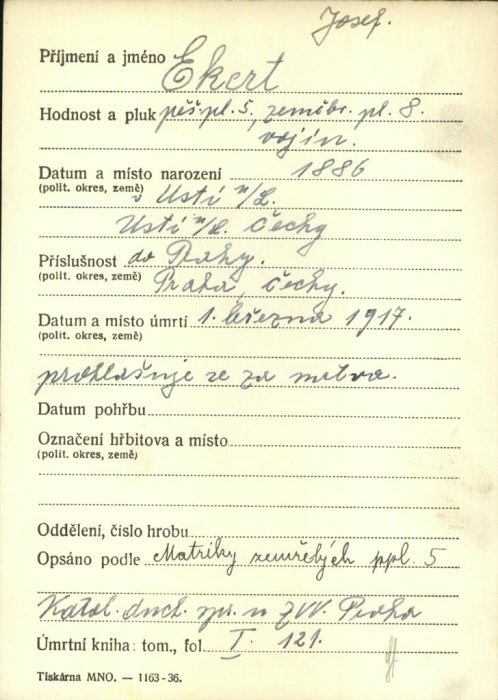 Josef.
Příjmení a jméno Ekert
Hodnost a pluk pěš. pl. 5, zeměbr. pl. 8.
vojín.
Datum a místo narození 1886
(polit. okres, země) v Ústí n/L.
Ústí n/L. Čechy
Příslušnost do Prahy.
(polit. okres, země) Praha, Čechy.
Datum a místo úmrtí 1. března 1917.
(polit. okres, země)
prohlašuje se za mrtva.
Datum pohřbu
Označení hřbitova a místo
(polit. okres, země)
Oddělení, číslo hrobu
Opsáno podle Matriky zemřelých ppl. 5
Katol. duch. spr. u ZVV. Praha
Úmrtní kniha: tom., fol. I. 121.
Tiskárna MNO. — 1163-36.